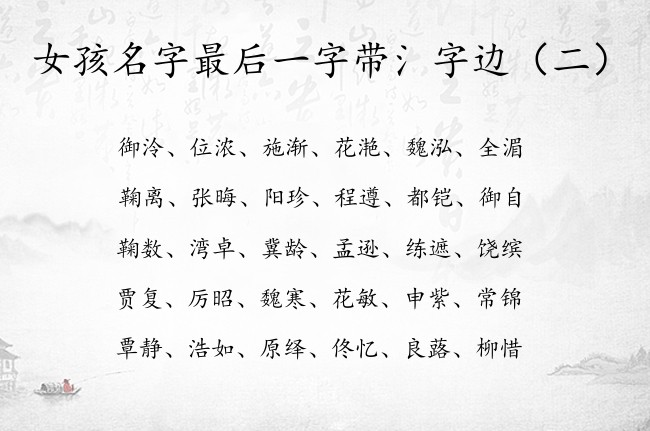 女孩名字最后一字带氵字边（二）
御泠、位浓、施渐、花滟、魏泓、全湄
鞠离、张晦、阳珍、程遵、都铠、御自
鞠数、湾卓、冀龄、孟逊、练遮、饶缤
贾复、厉昭、魏寒、花敏、申紫、常锦
覃静、浩如、原绎、佟忆、良蕗、柳惜